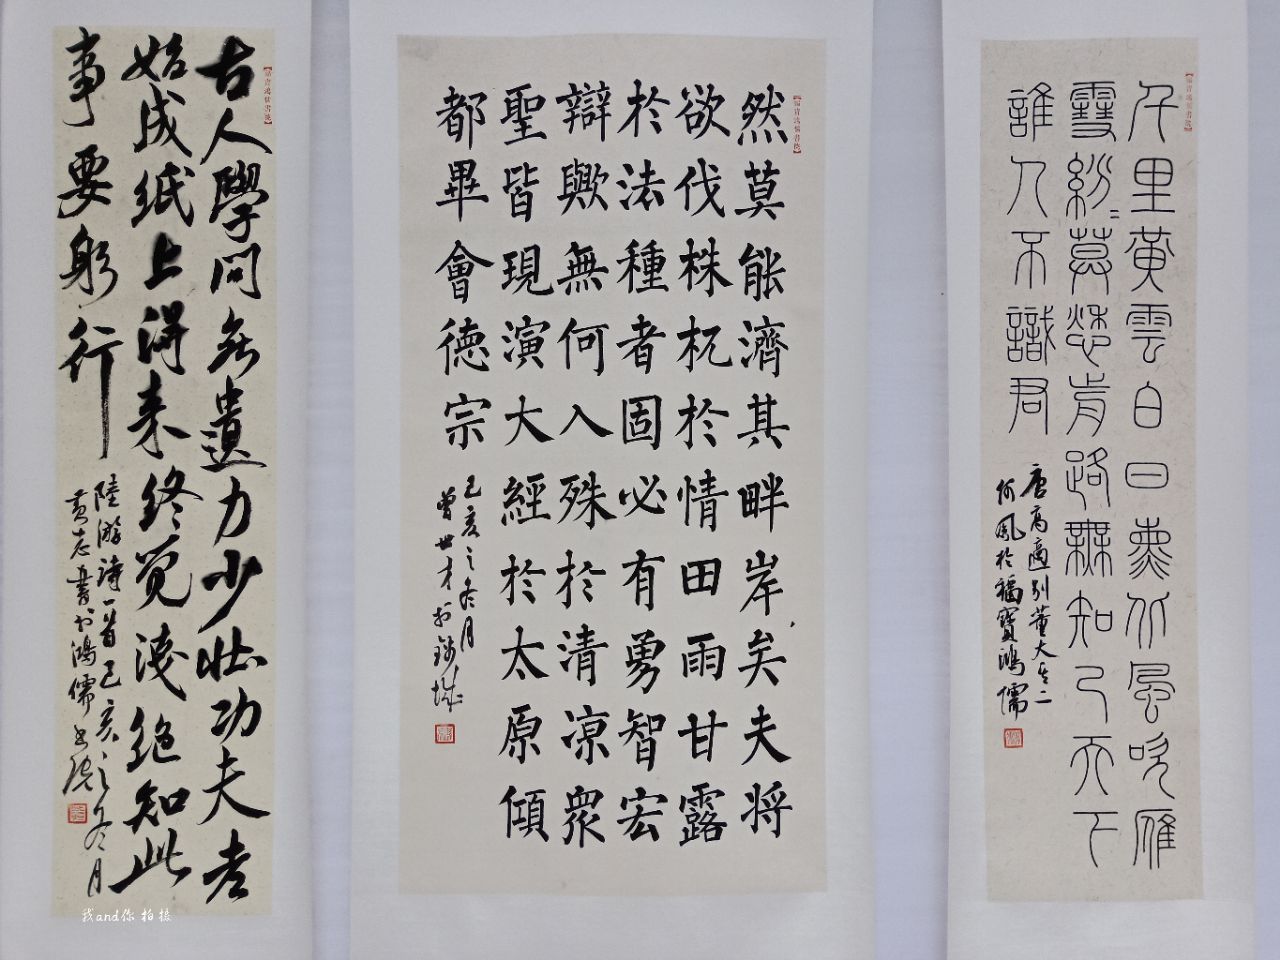 千里黃雲白日熏北風吹雁
雪紛〻莫愁前路無知己天下
誰人不識君
唐高適別董大其二
何風於福寶鴻儒
然莫能濟其畔岸矣夫將
欲伐株杌於情田雨甘露
於法種者固必有勇智宏
辯歟無何入殊於清凉衆
聖皆現演大經於太原傾
都畢會德宗
己亥之冬月
曾世才於錦城
古人學问無遺力少壯功夫老
始成紙上得来終覺淺絕知此
事要躬行
陸游詩一首己亥之冬月
黄志書於鴻儒書院
我and你 拍摄